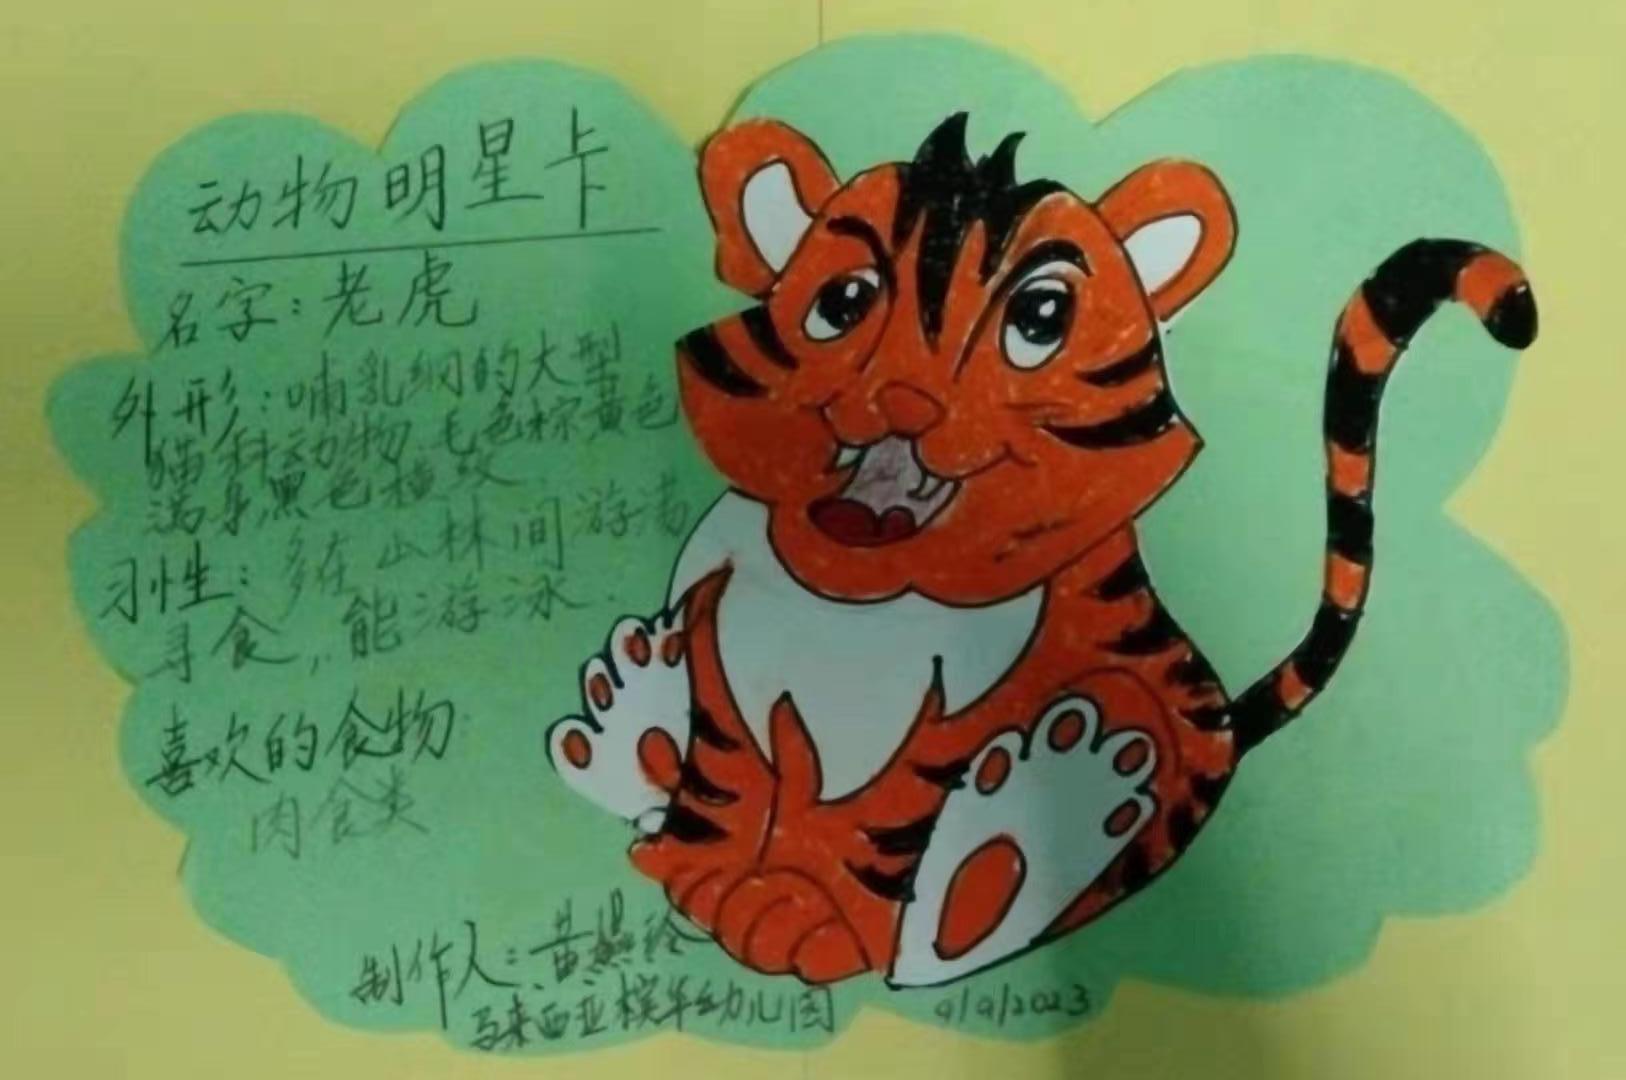 动物明星卡
名字：老虎
外形：哺乳纲的大型
猫科动物，毛色棕黄色
满身黑色横纹
习性：多在山林间游
寻食，能游泳.
喜欢的食物
肉食类
制作人：黄燕玲
马来西亚槟华幼儿园
9/9/2023